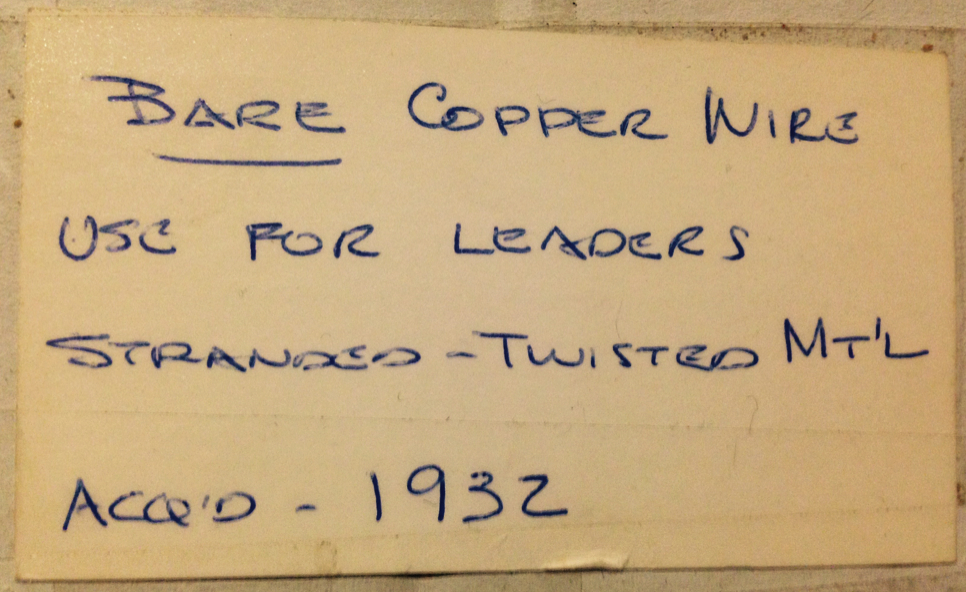 BARE COPPER WIRE
USE FOR LEADERS
STRANDED - TWISTED MT'L
ACCQ'D - 1932